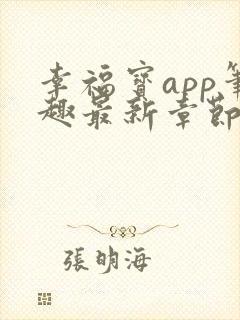 幸福寶app筆
趣最新章節
張明海